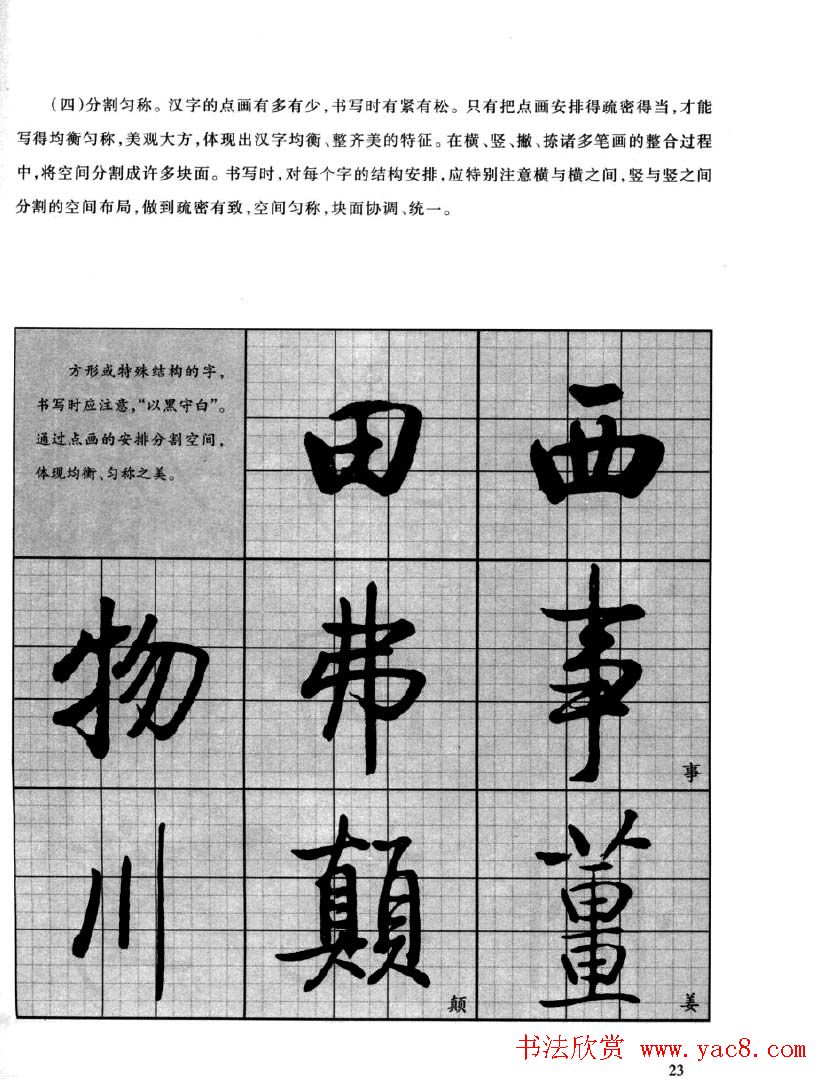 (四)分割匀称。汉字的点画有多有少,书写时有紧有松。只有把点画安排得疏密得当,才能
写得均衡匀称,美观大方,体现出汉字均衡、整齐美的特征。在横、竖、撇、捺诸多笔画的整合过程
中,将空间分割成许多块面。书写时,对每个字的结构安排,应特别注意横与横之间,竖与竖之间
分割的空间布局,做到疏密有致,空间匀称,块面协调、统一。
方形或特殊结构的字,
书写时应注意,“以黑守白”。
通过点画的安排分割空间,
体现均衡、匀称之美。
田
西
物
弗
事
事
川
顛
颠
薑
姜
书法欣赏 www.yac8.com
23